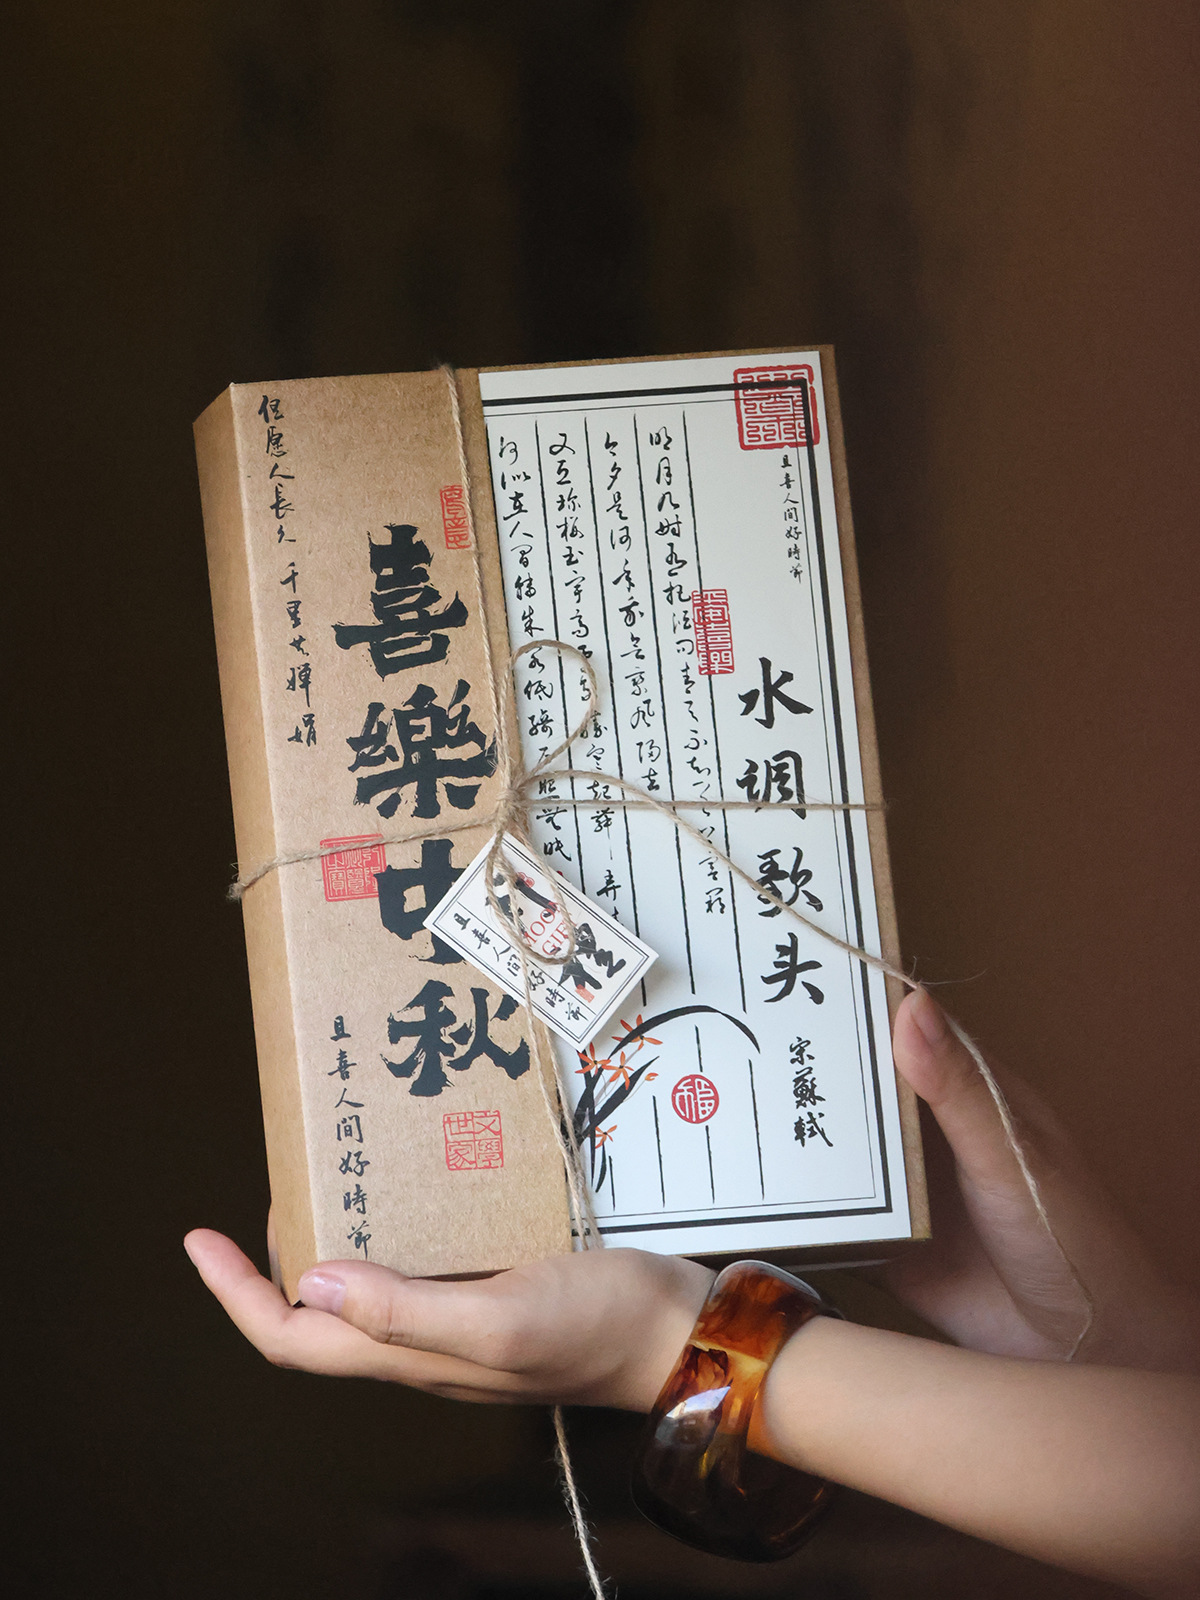 且喜人間好時節
水调歌头
宋蘇軾
明月几时有把酒问青天不知天上宫阙
今夕是何年我欲乘风归去
又恐琼楼玉宇高
寒起舞弄
何似在人间
朱阁低绮户照无眠
福
喜樂中秋
但愿人長久
千里共嬋娟
且喜人間好時節
文學世家
且喜人間好時節